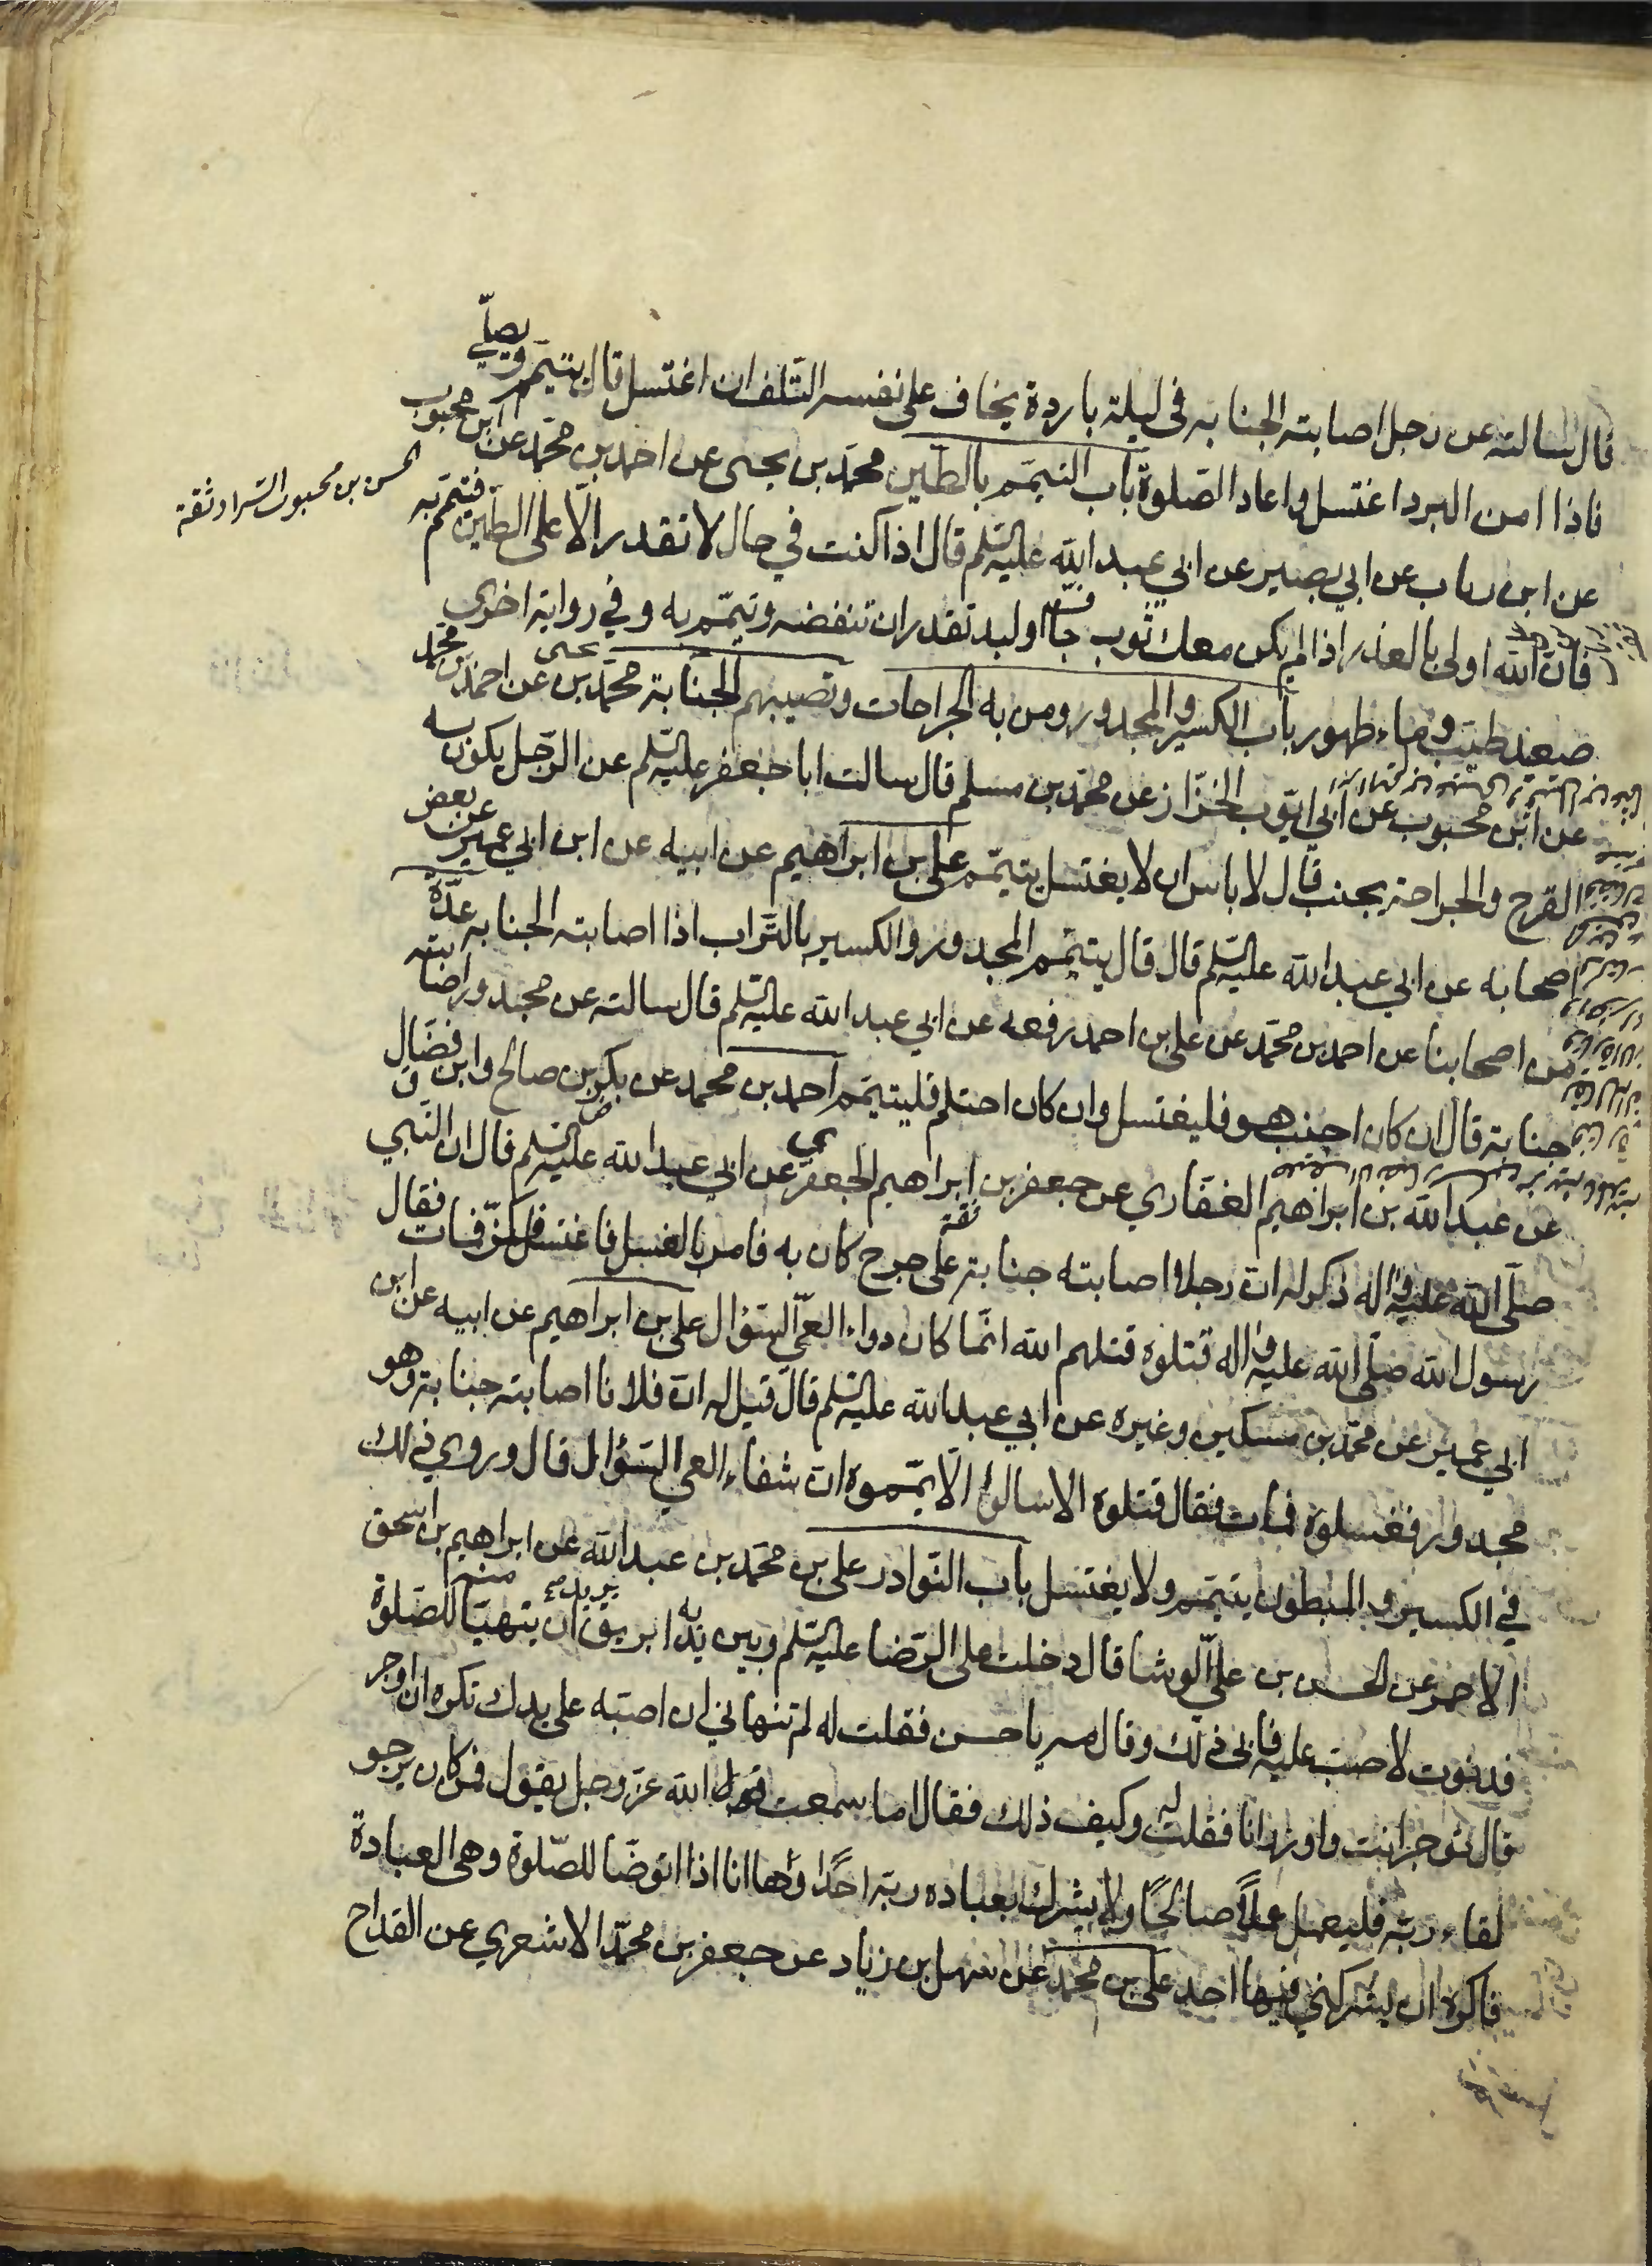 قال سالته عن رجل اصابته الجنابه في ليلة باردة يخاف على نفسه التلف ان اغتسل قال يتيمم ويصلّي
فاذا امن البرد اغتسل واعاد الصلوة باب التيمّم بالطين محمّد بن يحيى عن احمد بن محمّد عن ابن محبوب
الحسن بن محبوب السراد ثقة
عن ابن رياب عن ابي بصير عن ابي عبد الله عليه السلم قال اذا كنت في حال لا تقدر الّا على الطين فتيمّم به
فان الله اولى بالعذر اذا لم يكن معك ثوب جاف او لبد تقدر ان تنفضه وتيمّم به وفي رواية اخرى
صعيد طيّب وماء طهور باب الكسير والمجدور ومن به الجراحات وتصيبهم الجنابة محمّد بن يحيى عن احمد بن محمد
عن ابن محبوب عن ابي ايّوب الخزّاز عن محمّد بن مسلم قال سالت ابا جعفر عليه السلم عن الرّجل يكون به
القرح والجراحة يجنب قال لا باس ان لا يغتسل يتيمّم على بن ابراهيم عن ابيه عن ابن ابي عمير عن بعض
اصحابه عن ابي عبد الله عليه السلم قال قال يتيمّم المجدور والكسير بالتراب اذا اصابته الجنابه عدّة
من اصحابنا عن احمد بن محمّد عن على بن احمد رفعه عن ابي عبد الله عليه السلم قال سالته عن مجدور اصابته
جنابة قال ان كان اجنب هو فليغتسل وان كان احتلم فليتيمّم احمد بن محمد عن بكر بن صالح وابن فضّال
عن عبد الله بن ابراهيم الغفاري عن جعفر بن ابراهيم الجعفري عن ابي عبد الله عليه السلم قال ان النبي
صلّى الله عليه واله ذكر له انّ رجلا اصابته جنابة على جرح كان به فامر بالغسل فاغتسل فكزّ فمات فقال
رسول الله صلّى الله عليه واله قتلوه قتلهم الله انّما كان دواء العيّ السّؤال على بن ابراهيم عن ابيه عن ابن
ابي عمير عن محمّد بن مسكين وغيره عن ابي عبد الله عليه السلم قال قيل له انّ فلانا اصابته جنابة وهو
مجدور فغسلوه فمات فقال قتلوه الا سالوا الّا يمّموه انّ شفاء العي السّؤال قال وروي ذلك
في الكسير والمبطون يتيمّم ولا يغتسل باب النّوادر على بن محمّد بن عبد الله عن ابراهيم بن اسحق
الاحمر عن الحسن بن علي الوشا قال دخلت على الرّضا عليه السلم وبين يديه ابريق يريد ان يتهيّا منه للصّلوة
فدنوت لاصبّ عليه فابى ذلك وقال مه يا حسن فقلت له لم تنهاني ان اصبّه على يدك تكره ان اوجر
قال توجر انت واوزر انا فقلت له وكيف ذلك فقال اما سمعت الله عزّ وجل يقول فمن كان يرجو
لقاء ربّه فليعمل عملًا صالحًا ولا يشرك بعباده ربّه احدًا وها انا اذا اتوضّا للصّلوة وهى العبادة
فاكره ان يشركني فيها احد على بن محمّد عن سهل بن زياد عن جعفر بن محمّد الاشعري عن القداح